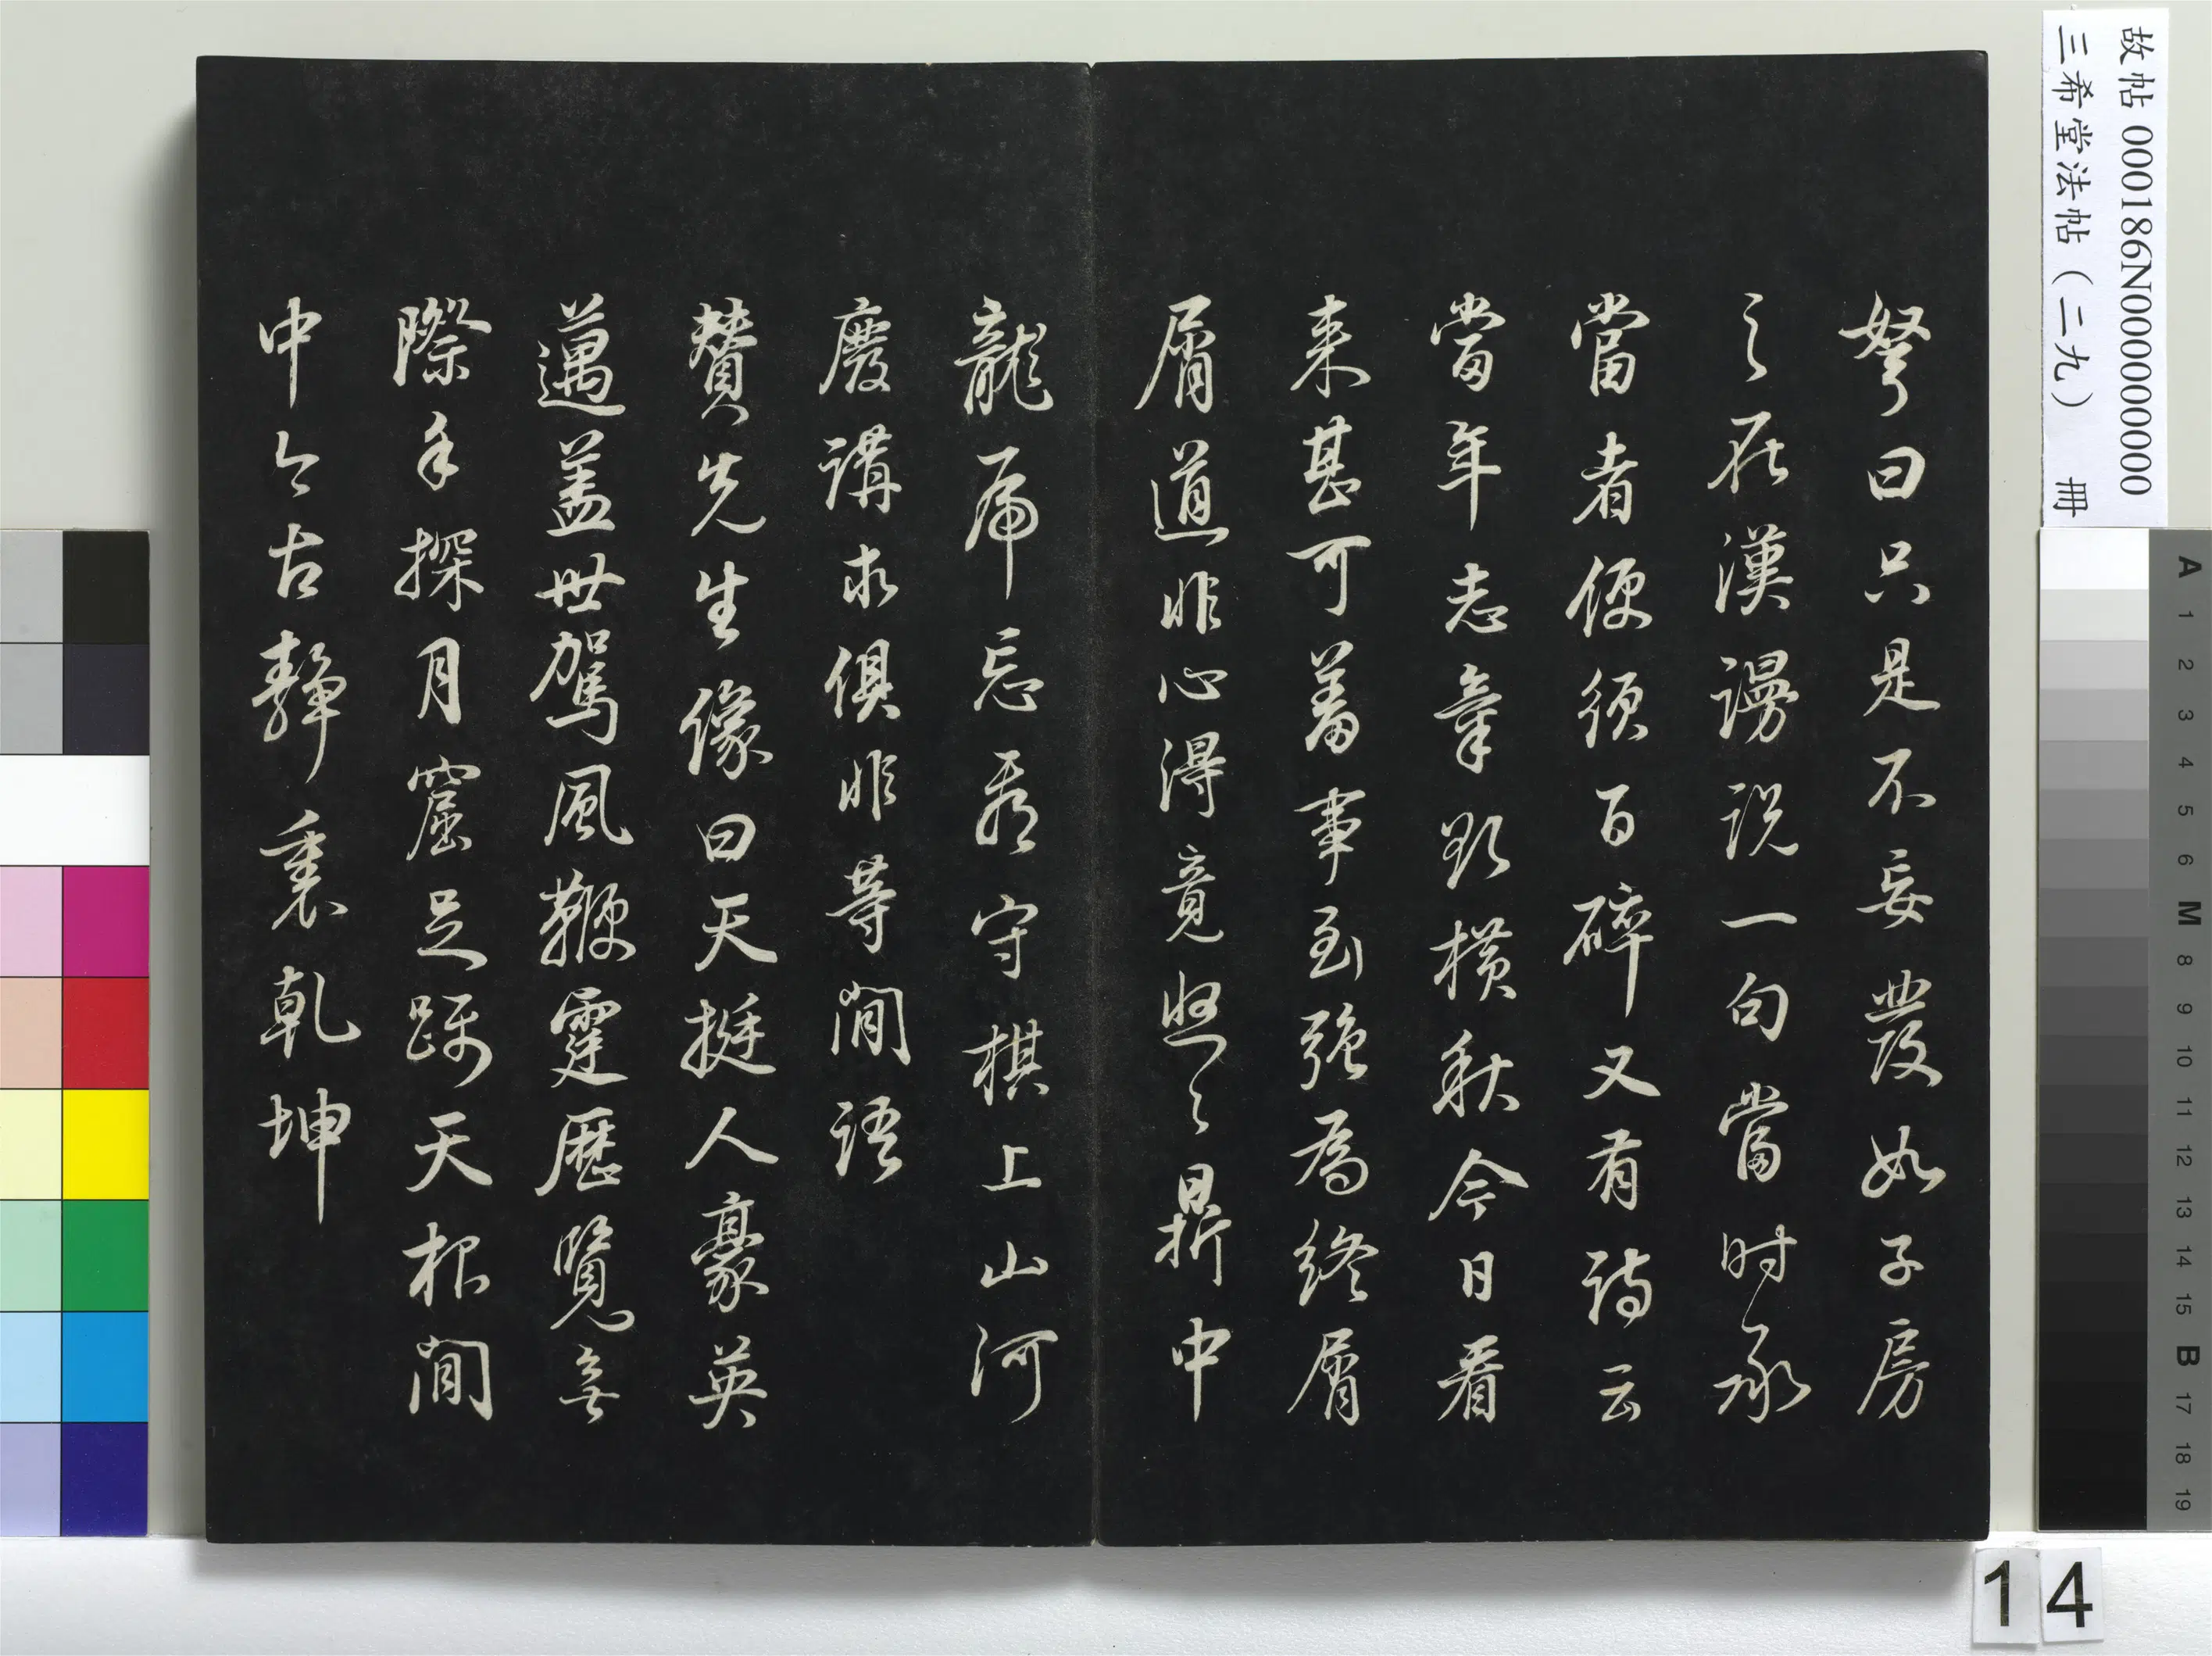 弩曰只是不妄發如子房
之在漢謾説一句當时承
當者便須百碎又有詩云
當年志氣欲橫秋今日看
来甚可羞事到强為終屑
屑道非心得竟悠々鼎中
龍虎忘看守棋上山河
廢講求俱非等閒語
贊先生像曰天挺人豪英
邁盖世駕風鞭霆歷覽無
際手探月窟足躡天根閒
中今古静裏乾坤
故帖 000186N000000000
三希堂法帖（二九） 冊
A 1 2 3 4 5 6 M 8 9 10 11 12 13 14 15 B 17 18 19
14